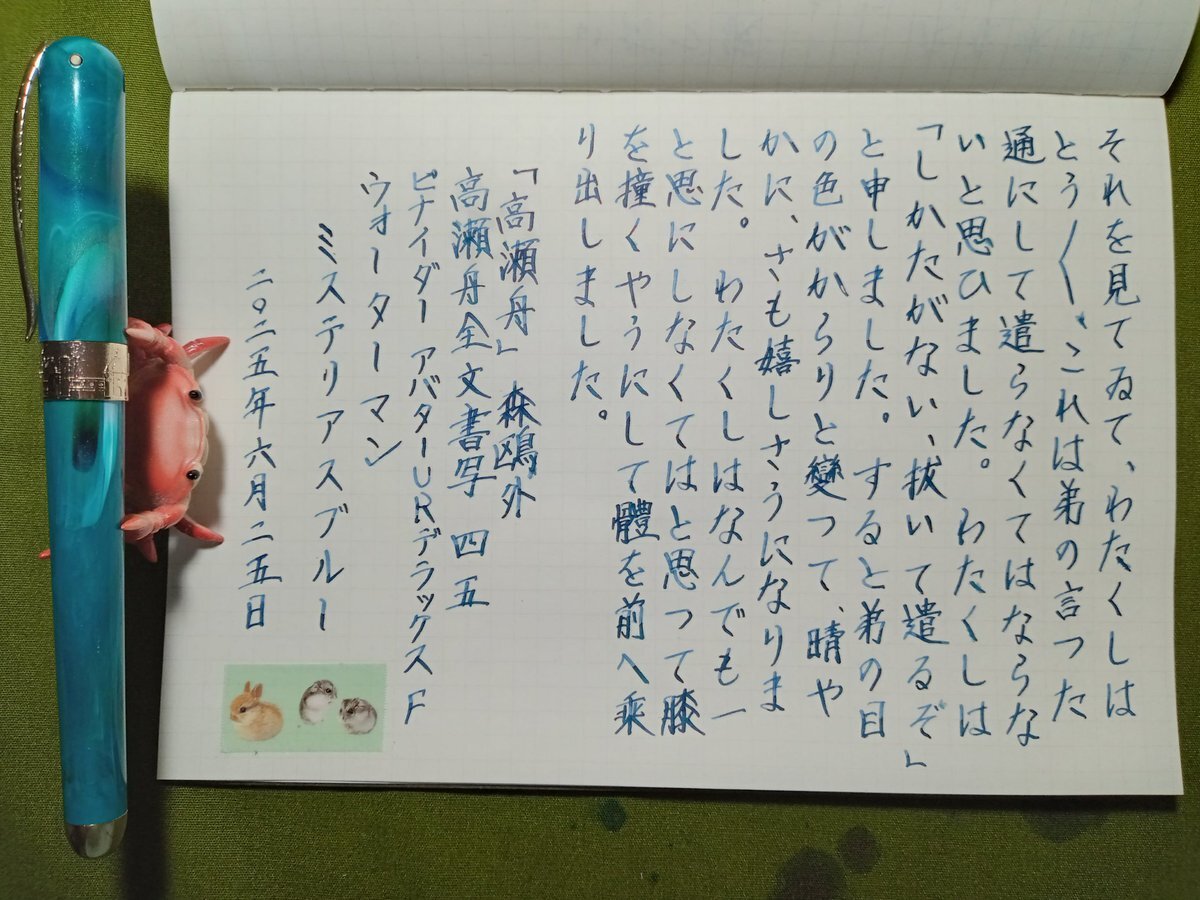 それを見てゐて、わたくしは
とう〳〵、これは弟の言つた
通にして遣らなくてはならな
いと思ひました。わたくしは
「しかたがない、抜いて遣るぞ」
と申しました。すると弟の目
の色がからりと變つて、晴や
かに、さも嬉しさうになりま
した。わたくしはなんでも一
と思にしなくてはと思つて膝
を撞くやうにして體を前へ乘
り出しました。
「高瀬舟」 森鴎外
高瀬舟全文書写 四五
ピナイダー アバターURデラックスF
ウォーターマン
ミステリアスブルー
二〇二五年六月二五日